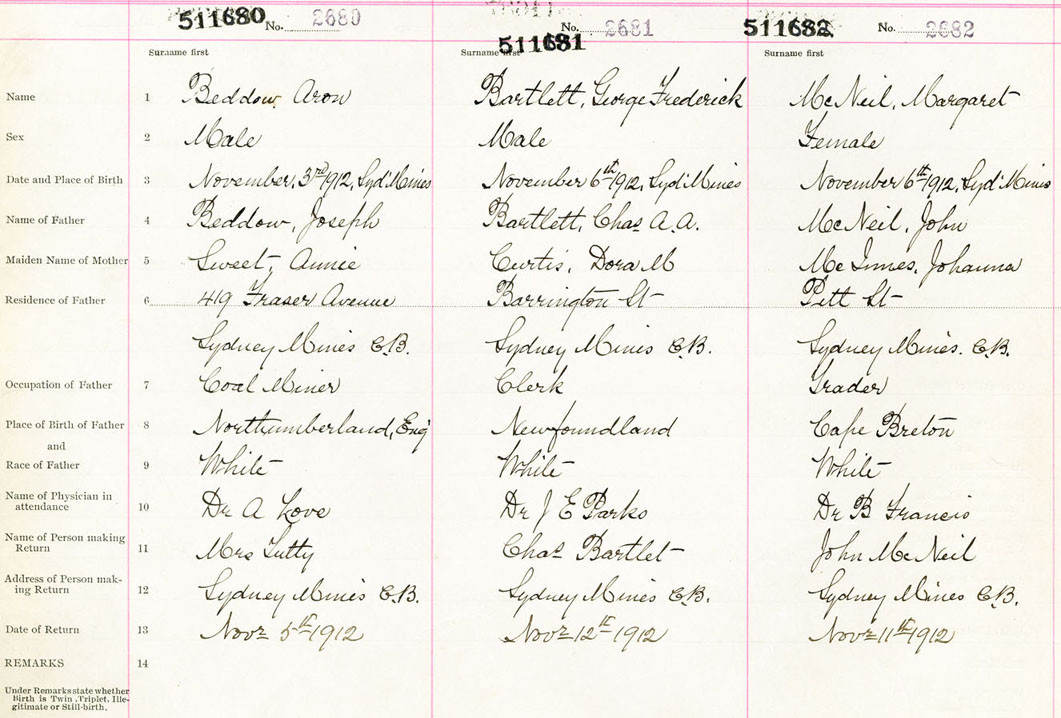 511680 No. 2680 511681 No. 2681 511682 No. 2682
Surname first Surname first Surname first
Name 1 Beddow, Aron Bartlett, George Frederick McNeil, Margaret
Sex 2 Male Male Female
Date and Place of Birth 3 November, 3rd/1912, Syd. Mines November 6th/1912, Syd. Mines November 6th/1912, Syd. Mines
Name of Father 4 Beddow, Joseph Bartlett, Chas A.A. McNeil, John
Maiden Name of Mother 5 Sweet, Annie Curtis, Dora M McInnes, Johanna
Residence of Father 6 419 Fraser Avenue Barrington St Pitt St
Sydney Mines C.B. Sydney Mines C.B. Sydney Mines. C.B.
Occupation of Father 7 Coal Miner Clerk Trader
Place of Birth of Father 8 Northumberland, Eng Newfoundland Cape Breton
and
Race of Father 9 White White White
Name of Physician in
attendance 10 Dr A Love Dr J E Parks Dr B Francis
Name of Person making
Return 11 Mrs Tutty Chas Bartlet John McNeil
Address of Person mak-
ing Return 12 Sydney Mines C.B. Sydney Mines C.B. Sydney Mines C.B.
Date of Return 13 Novr 5th 1912 Novr 12th 1912 Novr 11th 1912
REMARKS 14
Under Remarks state whether
Birth is Twin, Triplet, Ille-
gitimate or Still-birth.